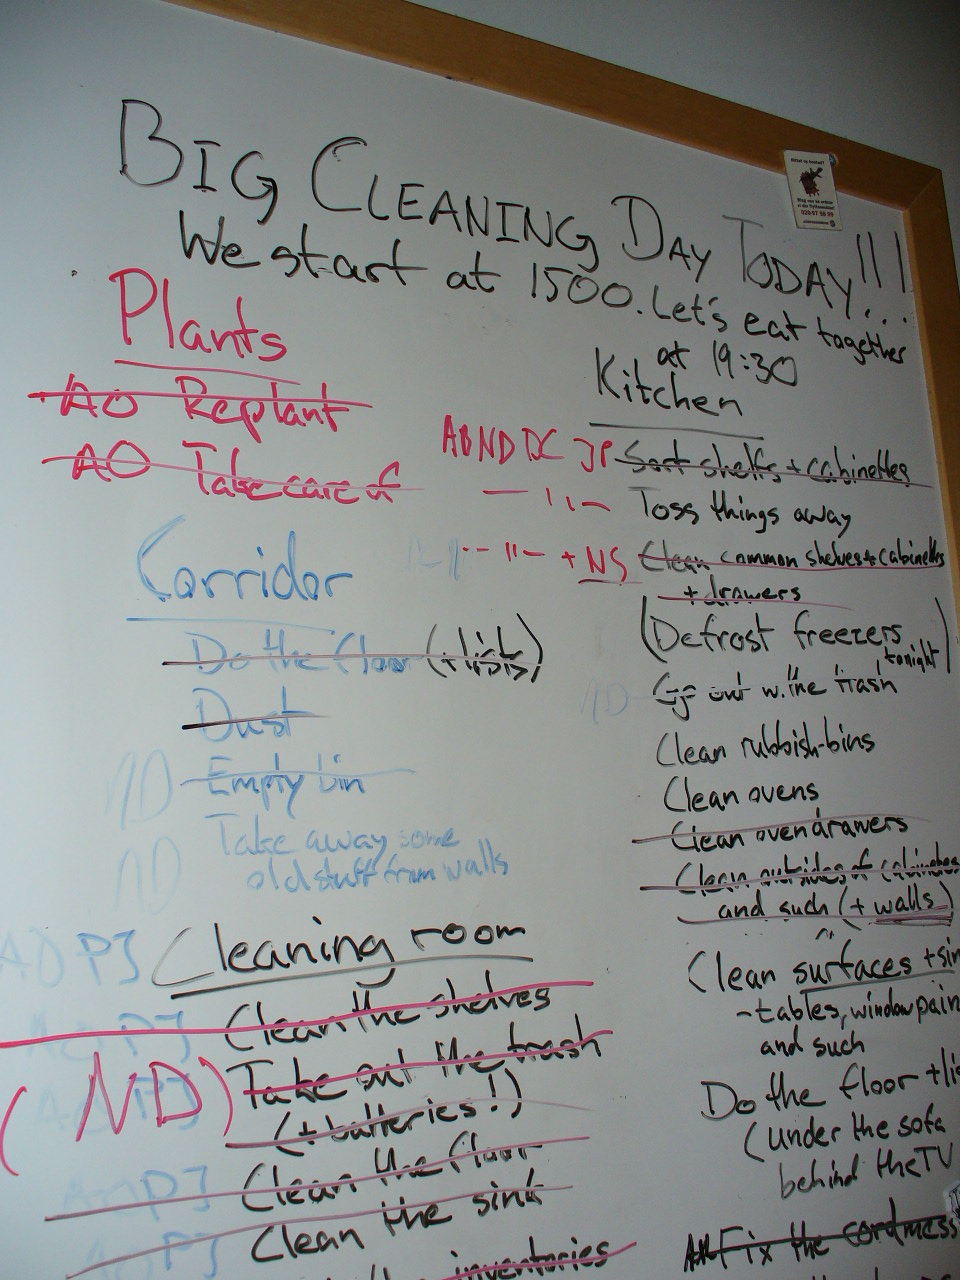 BIG CLEANING DAY TODAY!!!
We start at 1500. Let's eat together
at 19:30
Plants
AO Replant
AO Take care of
Corridor
Do the floor (+lists)
Dust
ND Empty bin
ND Take away some
old stuff from walls
Cleaning room
Clean the shelves
(ND) Take out the trash
(+batteries!)
Clean the floor
Clean the sink
inventories
Kitchen
AB ND DC JP Sort shelfs + cabinettes
— " — Toss things away
-- " — + NS Clean common shelves + cabinettes
+ drawers
(Defrost freezers
tonight)
ND Go out w. the trash
Clean rubbish-bins
Clean ovens
Clean oven drawers
Clean outsides of cabinettes
and such (+ walls)
Clean surfaces + sin
- tables, window pain
and such
Do the floor + lis
(under the sofa
behind the TV
Fix the cordmess